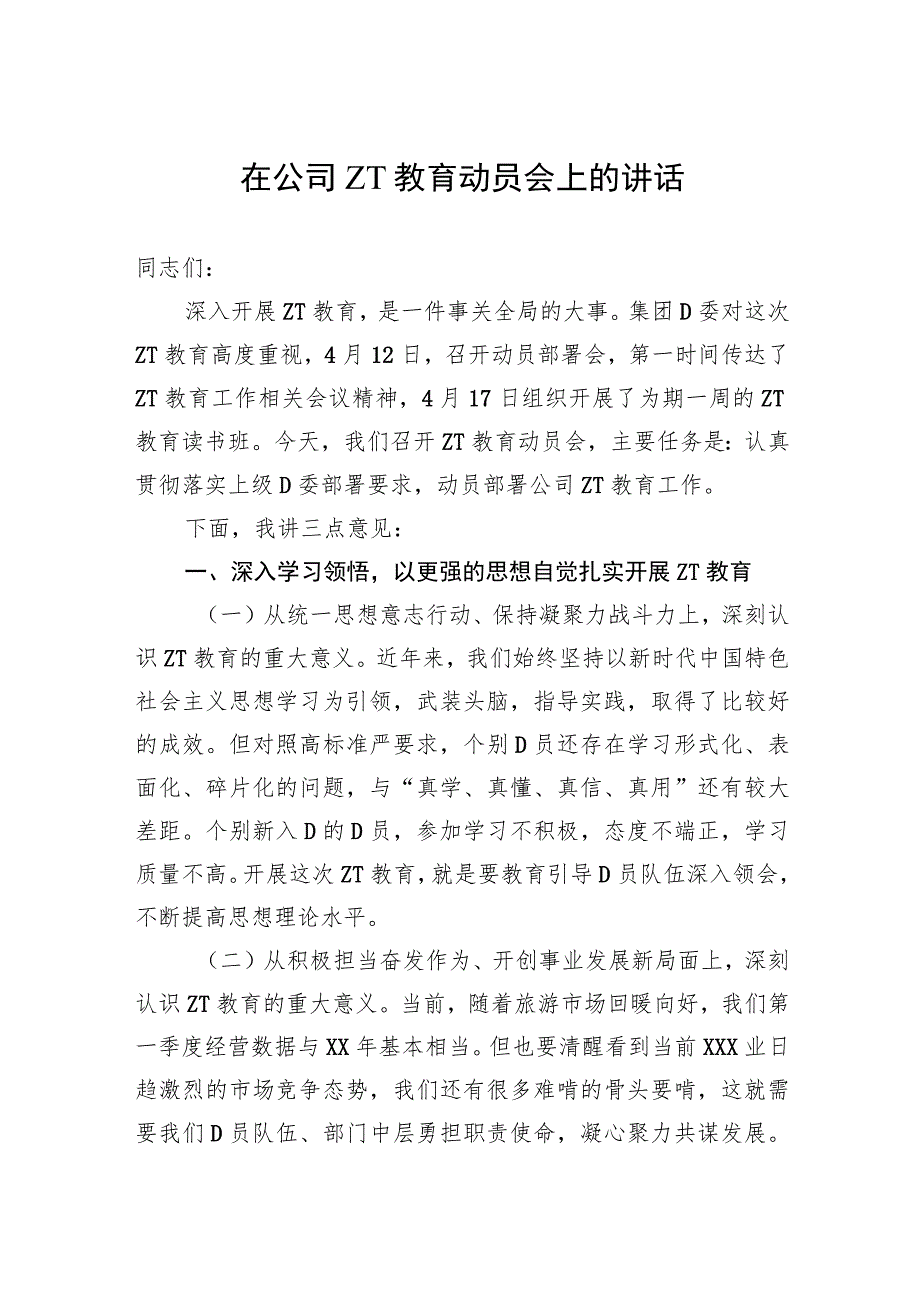 在公司 ZT 教育动员会上的讲话
同志们：
深入开展 ZT 教育，是一件事关全局的大事。集团 D 委对这次
ZT 教育高度重视，4 月 12 日，召开动员部署会，第一时间传达了
ZT 教育工作相关会议精神，4 月 17 日组织开展了为期一周的 ZT
教育读书班。今天，我们召开 ZT 教育动员会，主要任务是：认真
贯彻落实上级 D 委部署要求，动员部署公司 ZT 教育工作。
下面，我讲三点意见：
一、深入学习领悟，以更强的思想自觉扎实开展 ZT 教育
（一）从统一思想意志行动、保持凝聚力战斗力上，深刻认
识 ZT 教育的重大意义。近年来，我们始终坚持以新时代中国特色
社会主义思想学习为引领，武装头脑，指导实践，取得了比较好
的成效。但对照高标准严要求，个别 D 员还存在学习形式化、表
面化、碎片化的问题，与“真学、真懂、真信、真用”还有较大
差距。个别新入 D 的 D 员，参加学习不积极，态度不端正，学习
质量不高。开展这次 ZT 教育，就是要教育引导 D 员队伍深入领会，
不断提高思想理论水平。
（二）从积极担当奋发作为、开创事业发展新局面上，深刻
认识 ZT 教育的重大意义。当前，随着旅游市场回暖向好，我们第
一季度经营数据与 XX 年基本相当。但也要清醒看到当前 XXX 业日
趋激烈的市场竞争态势，我们还有很多难啃的骨头要啃，这就需
要我们 D 员队伍、部门中层勇担职责使命，凝心聚力共谋发展。